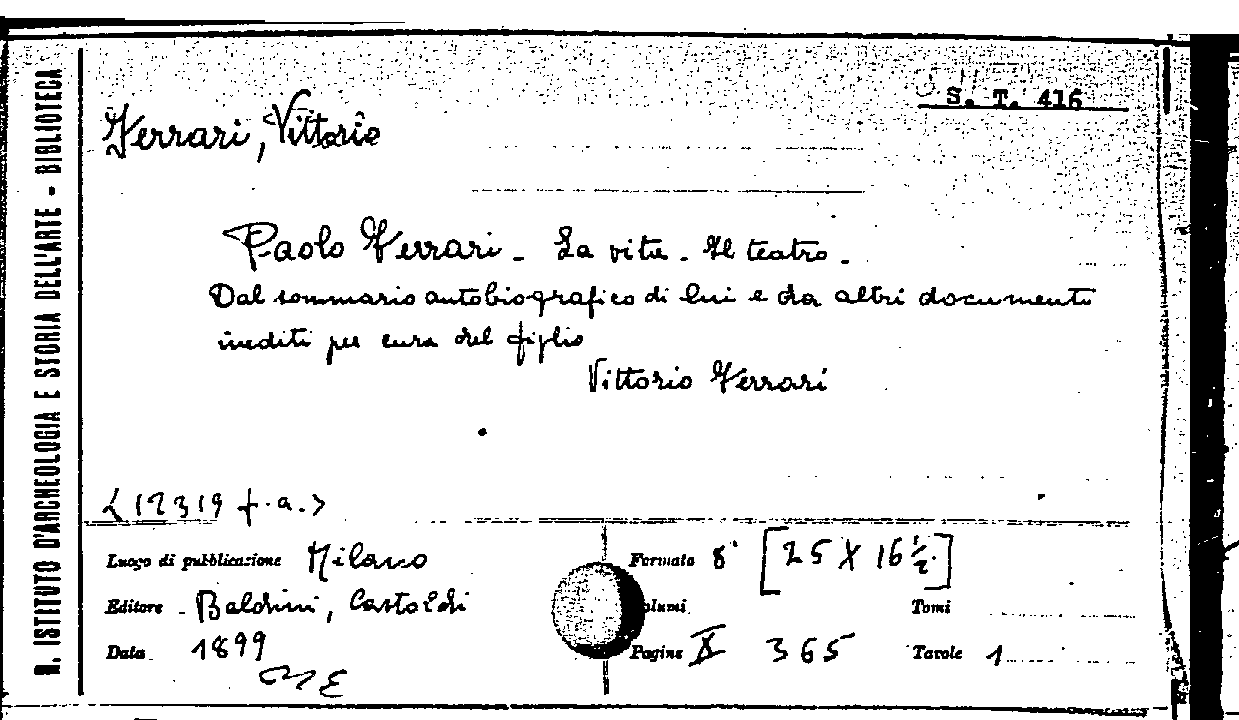 R. ISTITUTO D'ARCHEOLOGIA E STORIA DELL'ARTE - BIBLIOTECA
S. T. 416
Ferrari, Vittorio
Paolo Ferrari - La vita - Il teatro -
Dal sommario autobiografico di lui e da altri documenti
inediti per cura del figlio
Vittorio Ferrari
<12319 f.a.>
Luogo di pubblicazione Milano
Editore - Baldini, Castoldi
Data 1899
ME
Formato 8° [25 X 16 ½]
olumi Tomi
Pagine X 365 Tavole 1